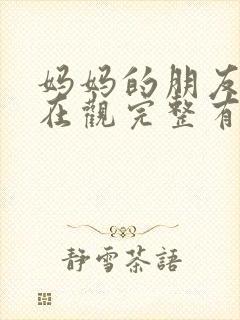 妈妈的朋友
在觀完整有
静雪茶語